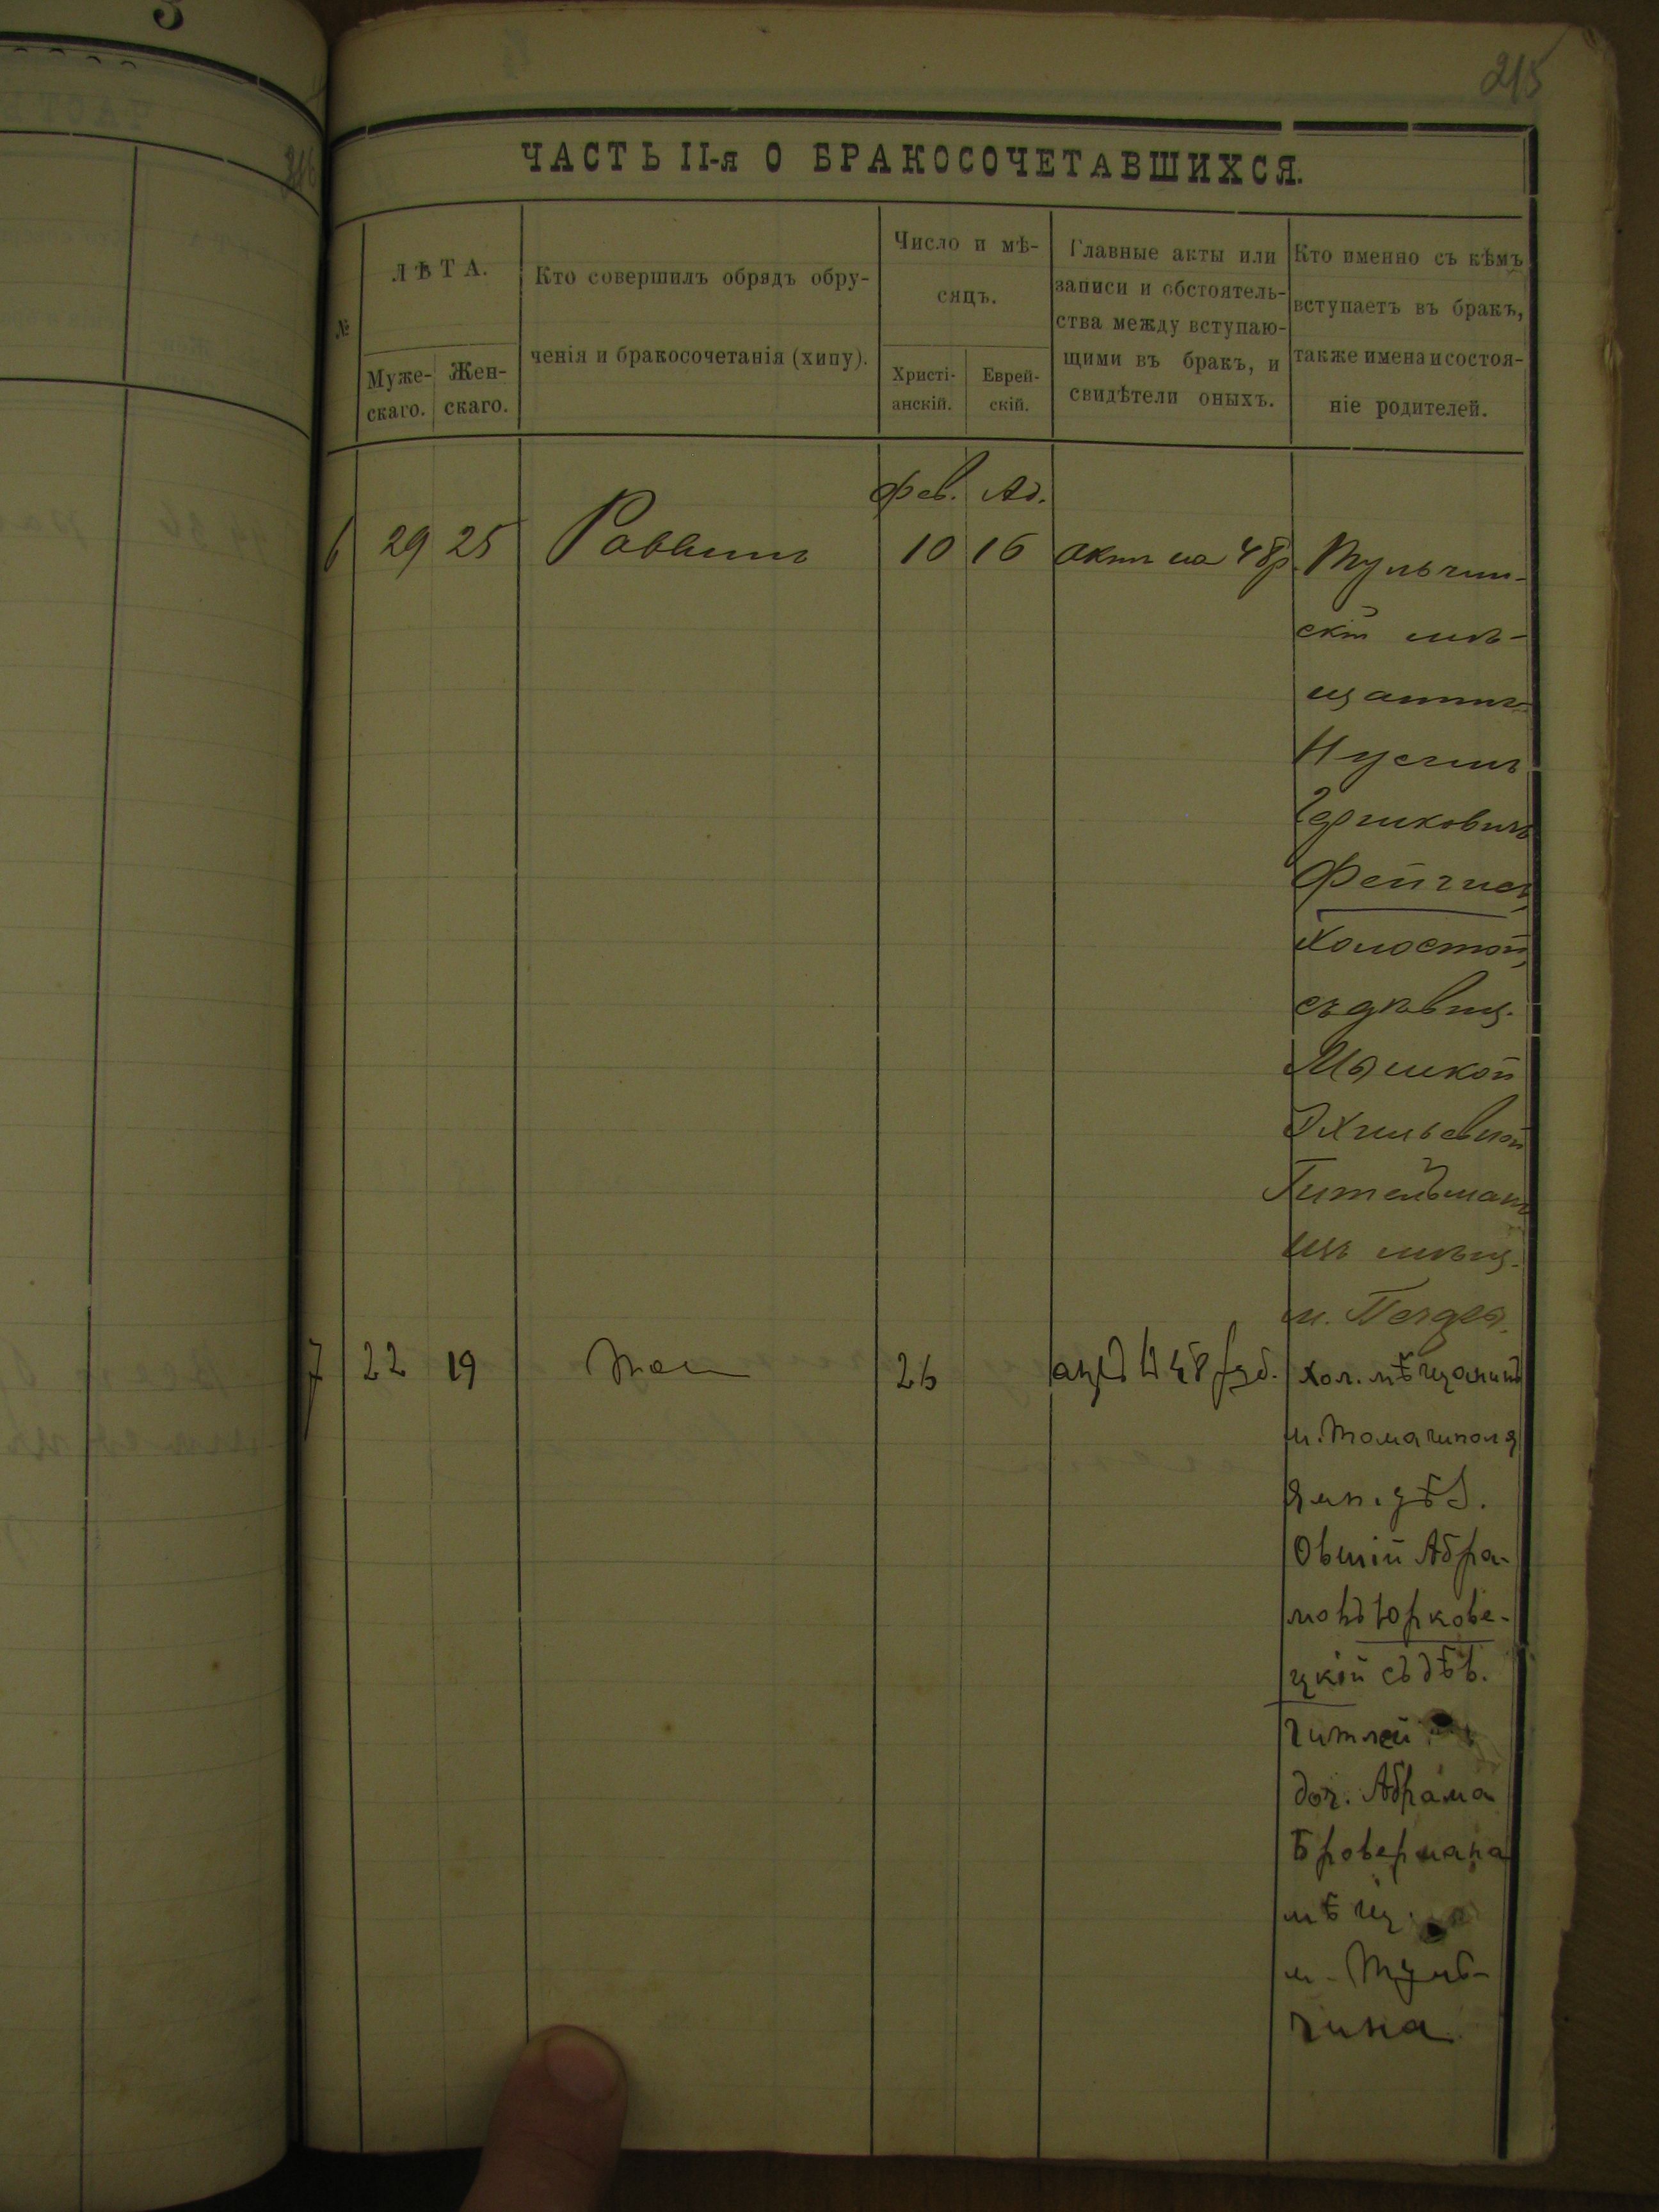 215
ЧАСТЬ II-я О БРАКОСОЧЕТАВШИХСЯ.
№
ЛѢТА.
Муже-
скаго.
Жен-
скаго.
Кто совершилъ обрядъ обру-
ченія и бракосочетанія (хипу).
Число и мѣ-
сяцъ.
Христі-
анскій.
Еврей-
скій.
Главные акты или
записи и обстоятель-
ства между вступаю-
щими въ бракъ, и
свидѣтели оныхъ.
Кто именно съ кѣмъ
вступаетъ въ бракъ,
также имена и состоя-
ніе родителей.
фев. Ад.
6 29 25 Раввинъ 10 16 актъ на 48р. Тульчин-
скій мѣ-
щанинъ
Нусинъ
Гершковичъ
Фейгисъ,
холостой,
съ дѣвиц.
Эхильевной
Гительманъ
изъ мѣщ.
7 22 19 26 48 руб. хол. мѣщанинъ
м. Томашполя
Ямп. уѣз.
Овшій Абра-
мовъ Юркове-
цкій съ дѣв.
Гитлей
доч. Абрама
Бровермана
мѣщ.
м. Туль-
чина